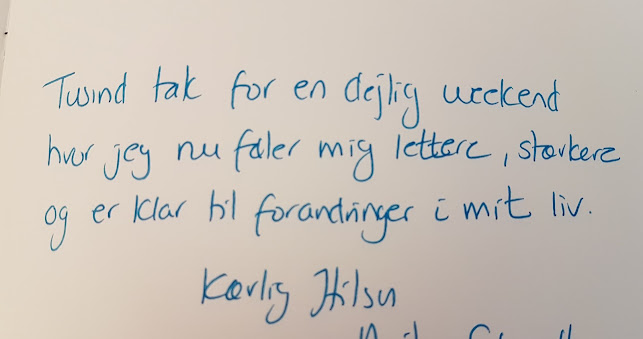 Tusind tak for en dejlig weekend
hvor jeg nu føler mig lettere, stærkere
og er klar til forandringer i mit liv.
Kærlig Hilsen